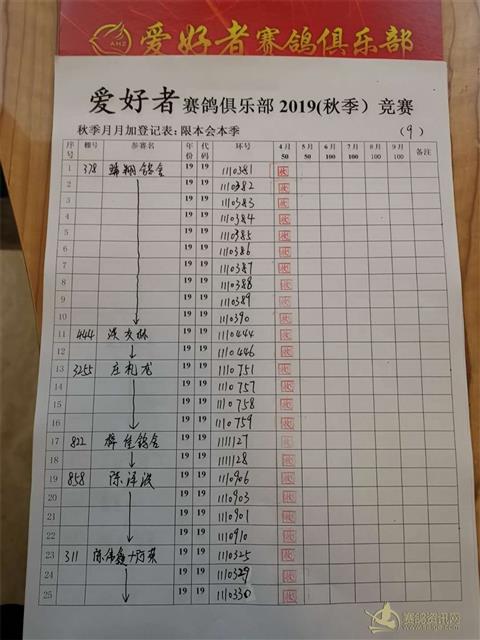 AHZ 爱好者赛鸽俱乐部
爱好者 赛鸽俱乐部 2019(秋季）竞赛
秋季月月加登记表：限本会本季 （9）
序号 棚号 参赛名 年份 代码 环号 4月 50 5月 100 6月 100 7月 100 8月 100 9月 100 备注
1 378 翱翔鸽舍 19 19 1110381 收
2 19 19 1110382 收
3 19 19 1110383 收
4 19 19 1110384 收
5 19 19 1110385 收
6 19 19 1110386 收
7 19 19 1110387 收
8 19 19 1110388 收
9 19 19 1110389 收
10 19 19 1110390 收
11 444 洪友林 19 19 1110444 收
12 19 19 1110446 收
13 3255 庄礼龙 19 19 1110751 收
14 19 19 1110757 收
15 19 19 1110758 收
16 19 19 1110759 收
17 822 佳鸽舍 19 19 1111127 收
18 19 19 1111128 收
19 858 陈泽波 19 19 1110906 收
20 19 19 1110903 收
21 19 19 1110901 收
22 19 19 1110910 收
23 311 陈伟鑫+ 19 19 1110325 收
24 19 19 1110329 收
25 19 19 1110330 收
赛鸽资讯网